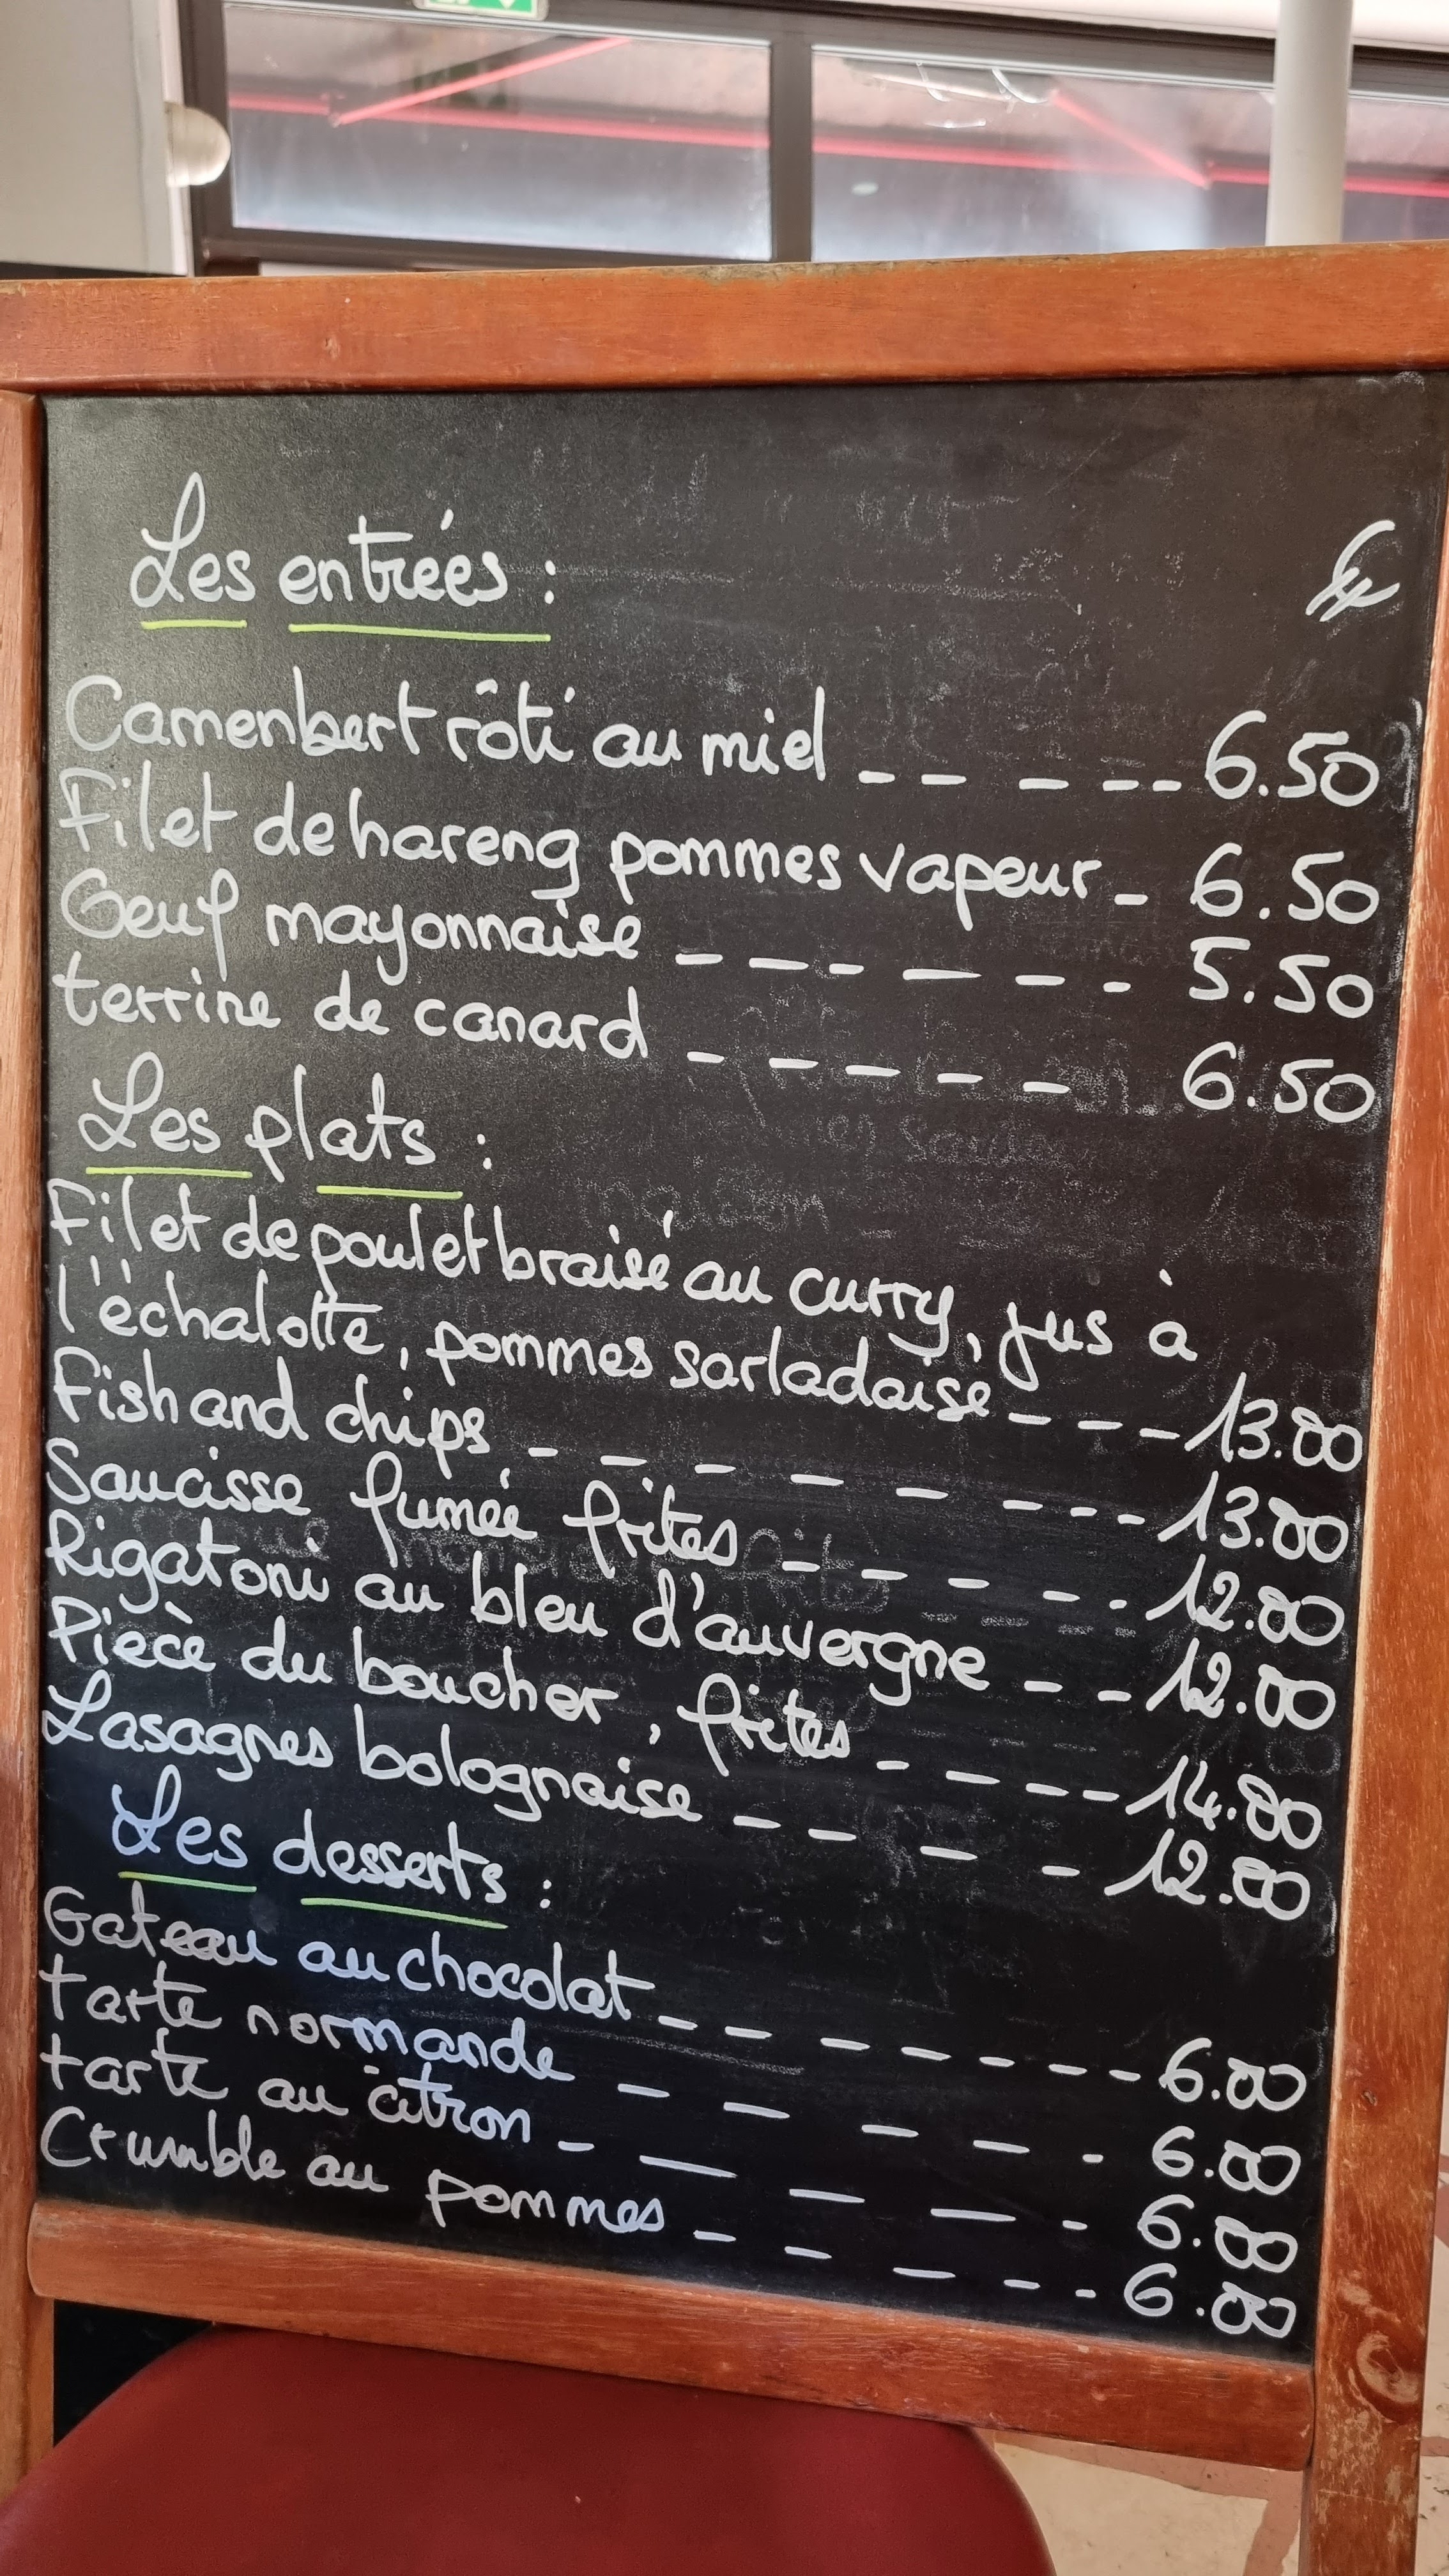 Les entrées : €
Camenbert rôti au miel _ _ _ _ _ 6.50
Filet de hareng pommes vapeur _ 6.50
Oeuf mayonnaise _ _ _ _ _ _ 5.50
terrine de canard _ _ _ _ _ 6.50
Les plats :
Filet de poulet braisé au curry, jus à
l'échalotte, pommes sarladaise _ _ _ 13.00
Fish and chips _ _ _ _ _ _ _ _ 13.00
Saucisse fumée frites _ _ _ _ _ 12.00
Rigatoni au bleu d'auvergne _ _ 12.00
Pièce du boucher, frites _ _ _ _ _ 14.00
Lasagnes bolognaise _ _ _ _ 12.00
Les desserts :
Gateau au chocolat _ _ _ _ _ _ _ 6.00
tarte normande _ _ _ _ _ 6.00
tarte au citron _ _ _ _ _ 6.00
Crumble au pommes _ _ _ _ _ 6.00